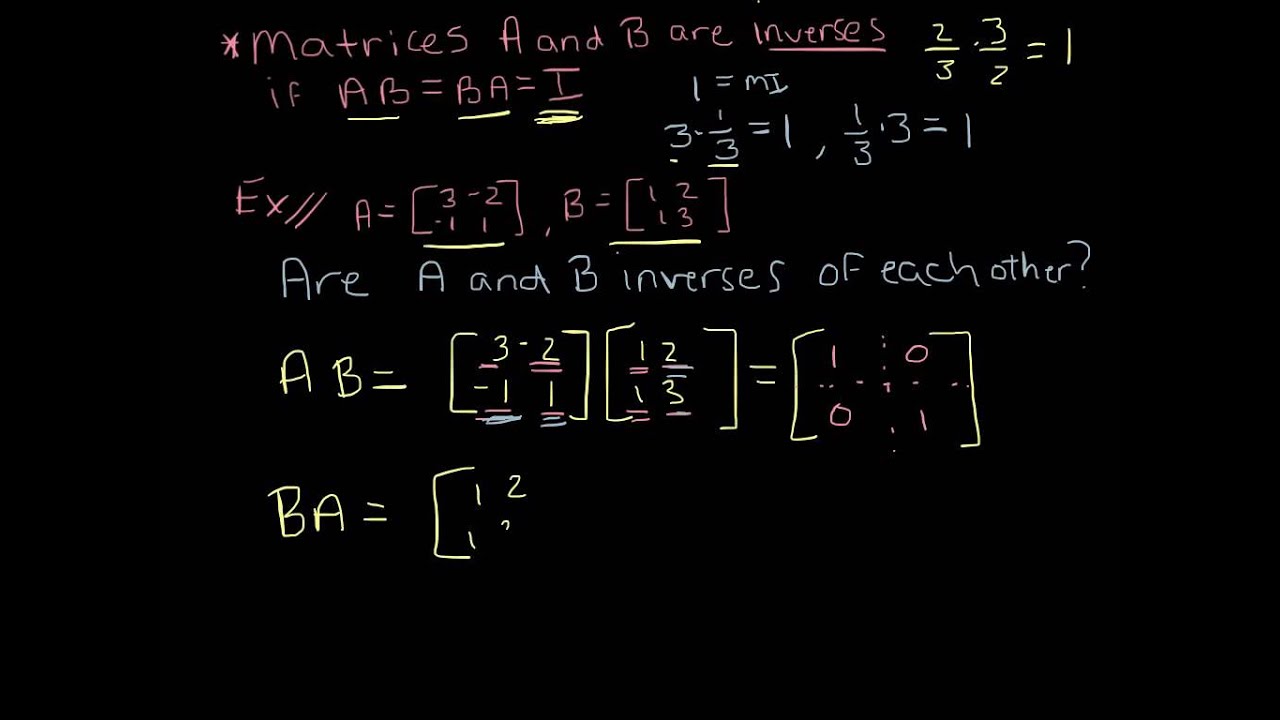 * Matrices A and B are inverses
2/3 · 3/2 = 1
if AB = BA = I
1 = mI
3 · 1/3 = 1 , 1/3 · 3 = 1
Ex// A = [3 -2; -1 1], B = [1 2; 1 3]
Are A and B inverses of each other?
AB = [3 -2; -1 1] [1 2; 1 3] = [1 0; 0 1]
BA = [1 2; 1